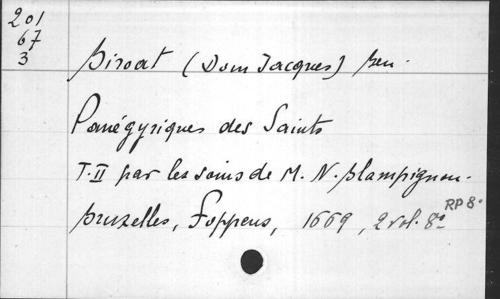 201
67
3
Biroat (Dom Jacques)
Panégyriques des Saints
T. II par les soins de M. N. plampignon.
bruxelles, Foppens, 1669, 2 vol. 8º
RP 8º